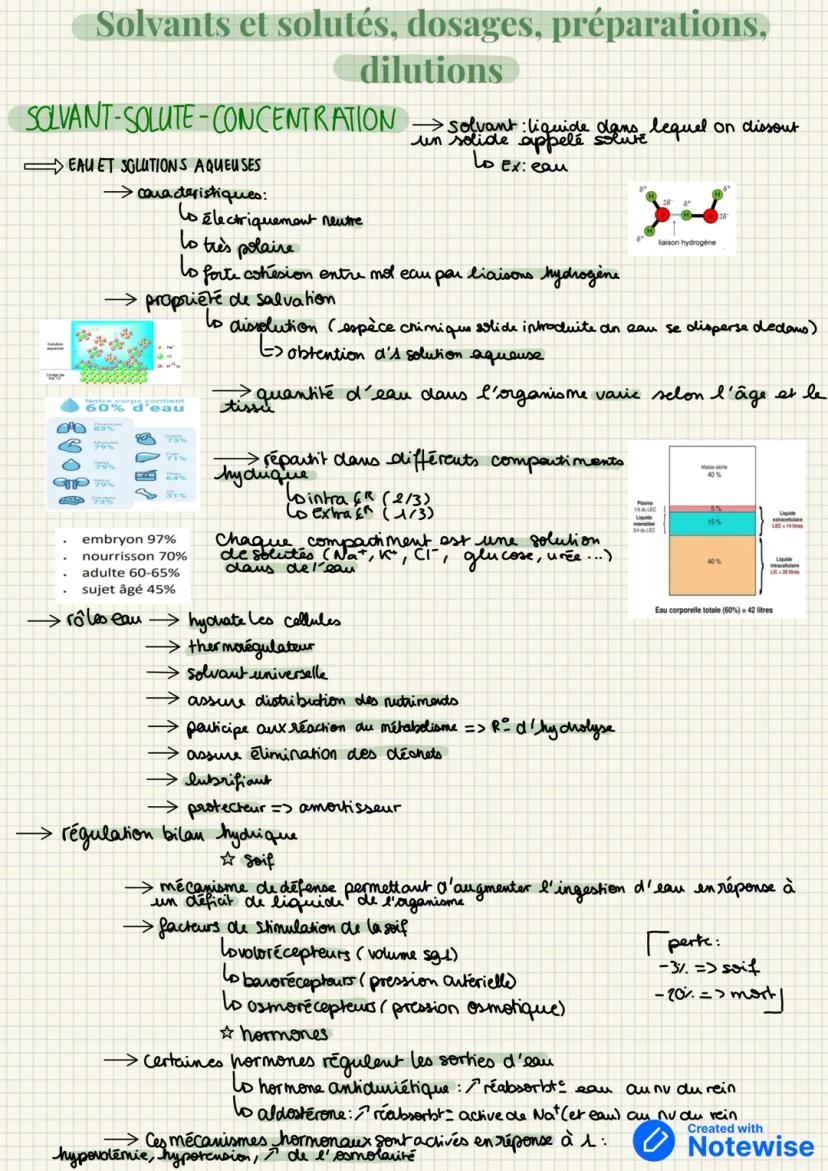 Solvants et solutés, dosages, préparations,
dilutions
SOLVANT-SOLUTE-CONCENTRATION
→ solvant : liquide dans lequel on dissout
un solide appelé soluté
↳ Ex: eau
⇒ EAU ET SOLUTIONS AQUEUSES
→ caractéristiques:
↳ électriquement neutre
↳ très polaire
↳ forte cohésion entre mol eau par liaisons hydrogène
δ+ H 2δ- δ+ H H δ+ 2δ- δ+ H
liaison hydrogène
→ propriété de salvation
↳ dissolution (espèce chimique solide introduite dn eau se disperse dedans)
↳ => obtention d'1 solution aqueuse
Solution
aqueuse
Cristal de
Na Cl
Na+
Cl-
→ quantité d'eau dans l'organisme varie selon l'âge et le
tissu
Notre corps contient
60% d'eau
Poumons
83%
Muscles
79%
79%
79%
Cerveau
73%
Cœur
73%
Foie
71%
Peau
64%
Os
31%
→ répartit dans différents compartiments
hydrique
↳ intra (2/3)
↳ Extra (1/3)
Chaque compartiment est une solution
de solutés (Na+, K+, Cl-, glucose, urée ...)
dans de l'eau
Masse sèche
40 %
Plasma
1/4 du LEC
5 %
Liquide
interstitiel
3/4 du LEC
15 %
Liquide
extracellulaire
LEC = 14 litres
40 %
Liquide
intracellulaire
LIC = 28 litres
Eau corporelle totale (60%) = 42 litres
• embryon 97%
• nourrisson 70%
• adulte 60-65%
• sujet âgé 45%
→ rôles eau → hydrate les cellules
→ thermorégulateur
→ solvant universelle
→ assure distribution des nutriments
→ participe aux réaction du métabolisme => R° d'hydrolyse
→ assure élimination des déchets
→ lubrifiant
→ protecteur => amortisseur
→ régulation bilan hydrique
☆ soif
→ mécanisme de défense permettant d'augmenter l'ingestion d'eau en réponse à
un déficit de liquide de l'organisme
→ facteurs de stimulation de la soif
↳ volorécepteurs (volume sg)
↳ barorécepteurs (pression artérielle)
↳ osmorécepteurs (pression osmotique)
perte:
-3% => soif
-20% => mort
☆ hormones
→ Certaines hormones régulent les sorties d'eau
↳ hormone antidiurétique : ↗ réabsorbt° eau au nv du rein
↳ aldostérone: ↗ réabsorbt° active de Na+ (et eau) au nv du rein
→ Ces mécanismes hormonaux sont activés en réponse à 1 :
hypovolémie, hypotension, ↗ de l'osmolarité
Created with
Notewise